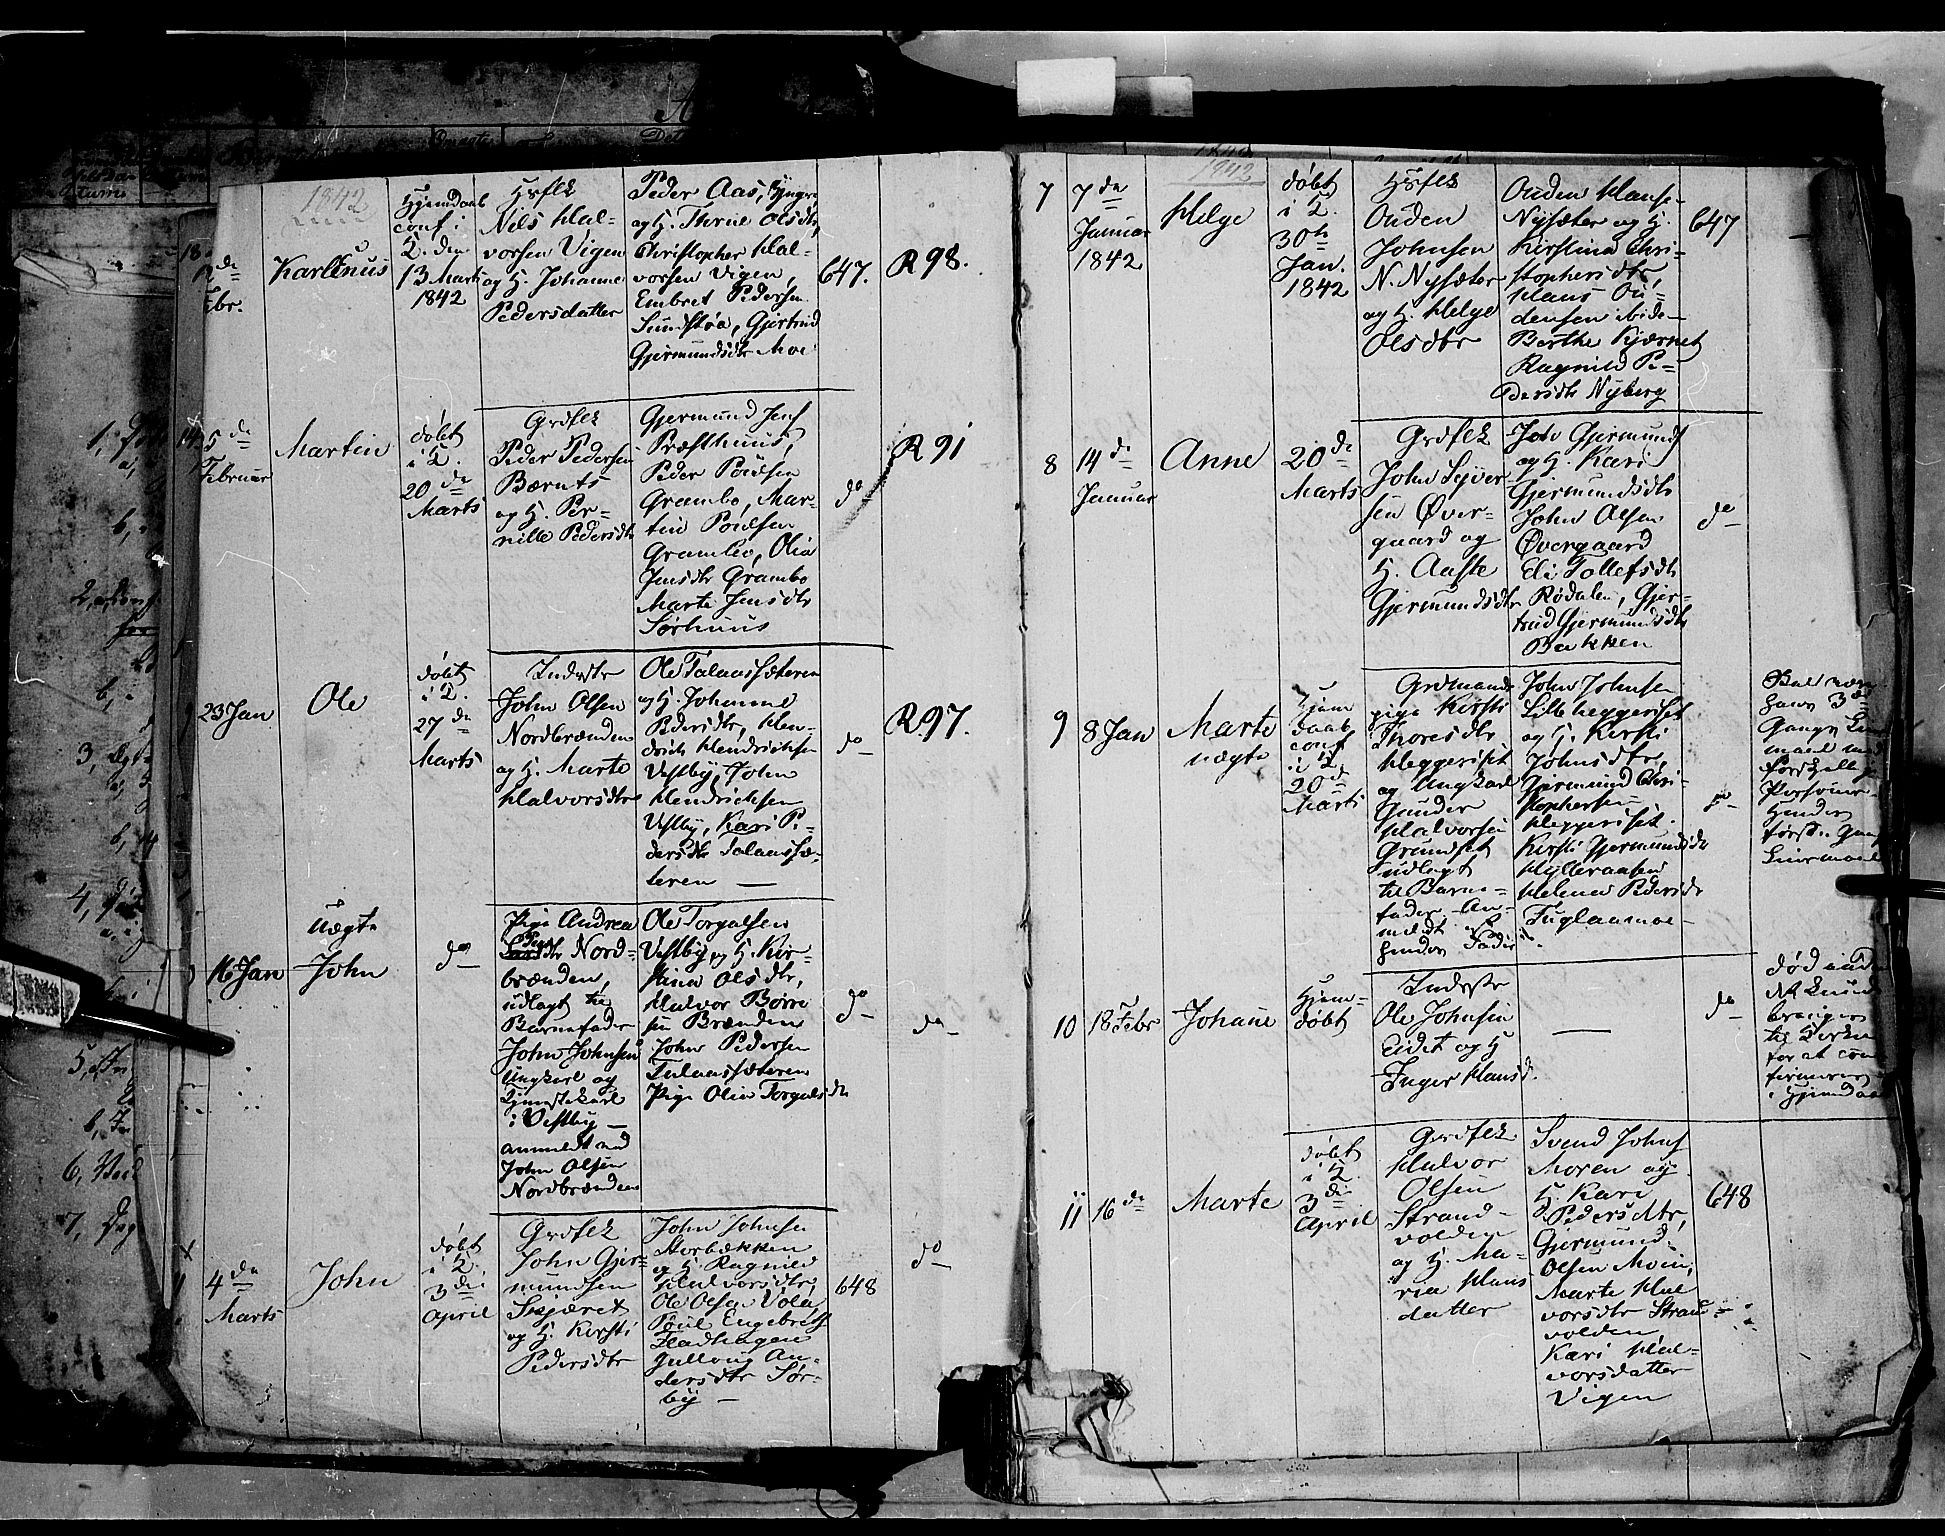 1842
18
12 de
Febr.
Karlinus
Hjemdaab
conf. i
K. den
13 Marts
1842
Hsflk
Niels Hal-
vorsen Vigen
og H. Johanne
Pedersdatter
Peder Aas,
og H. Thrine Olsdtr,
Christopher Hal-
vorsen Vigen,
Embret Pedersen
Sundstøa, Gjertrud
Gjermundsdtr Moe
647.
R 98.
5 de
Februar
Martin
døbt
i K.
20 de
Marts
Grdflk
Peder Pedersen
Bærnts
og H. Per-
nille Pedersdtr
Gjermund Jens
Præsthuus,
Peder Poulsen
Grambo, Mar-
tin Poulsen
Grambo, Olia
Jensdtr Grambo
Marte Jensdtr
Sørhuus
do
R 91
23 Jan
Ole
døbt
i K.
27 de
Marts
Inderster
John Olsen
Nordbrænden
og H. Marte
Halvorsdtr
Ole Talaassæteren
og H. Johanne
Pedersdtr, Hen-
drich Hendrichsen
Vestby, John
Hendrichsen
Vestby, Kari Pe-
dersdtr Talaassæ-
teren —
do
R. 97.
16 Jan
uægte
John
do
Pige Andrea
Nord-
brænden,
udlagt til
Barnefader
John Johnsen
Ungkarl og
Tjenestekarl
i Vestby —
anmeldt ved
John Olsen
Nordbrænden
Ole Torgalsen
Vestby og H. Kir-
stina Olsdtr,
Halvor Børre
sen Brænden
John Pedersen
Talaassæteren
Pige Olia Torgalsdtr
do
do
4 de
Marts
John
døbt
i K.
3 die
April
Grdflk
John Gjer-
mundsen
Skjæret
og H. Kirsti
Pedersdtr
John Johnsen
Storbækken
og H. Ragnild
Halvorsdtr,
Ole Olsen Vola,
Poul Engebrets
Fladhagen
Gullaug An-
dersdtr Sør-
by —
648
do
1842
7
7 de
Januar
1842
Helge
døbt
i K.
30te
Jan.
1842
Hsflk
Ouden
Johnsen
N. Nysæter
og H. Helge
Olsdtr
Ouden Hanse-
Nysæter og H.
Kirstina Chri-
stophersdtr,
Hans Ou-
densen ibid—
Berthe Kjærnet
Ragnild Pe-
dersdtr Nyberg
647
8
14 de
Januar
Anne
20 de
Marts
Grdflk
John Syver
sen Øver-
gaard og
H. Aaste
Gjermundsdtr
John Gjermunds
og H. Kari
Gjermundsdtr
John Olsen
Øvergaard
Eli Tollefsdtr
Rødalen, Gjer-
trud Gjermundsdtr
Bakken
do
9
8 Jan
Marte
uægte
Hjem
daab
conf
i K
20 de
Marts
Grdmands
pige Kirsti
Thoresdtr
Heggeriset
og Ungkarl
Gunder
Halvorsen
Grundset
udlagt
til Barne-
fader. An-
meldt af
hendes Fader
John Johnsen
Lille Heggeriset
og H. Kirsti
Johnsdtr,
Gjermund Chri-
stophersen
Heggeriset.
Kirsti Gjermundsdtr
Hylleraasen
Helena Pedersdtr
Fuglaamoe—
do
hans 3 die
Gangs Leier
maal med
forskellige
Personer
Hendes
første Gangs
Leiermaal
10
18 Febr
Johane
Hjem-
døbt
Inderster
Ole Johnsen
Eidet og H
Inger Hansd.
—
do
død inden
det kunde
bringes
til Kirken
for at con
firmeres
i Hjemdaab
11
16 de
Marte
døbt
i K.
3 die
April
Grdflk
Halvor
Olsen
Strand-
volden
og H. Ma-
ria Hans
datter
Svend Johns
Moren og
H. Kari
Pedersdtr,
Gjermund
Olsen Moen,
Marte Hal
vorsdtr Strand-
volden
Kari Hal-
vorsdatter
Vigen
648